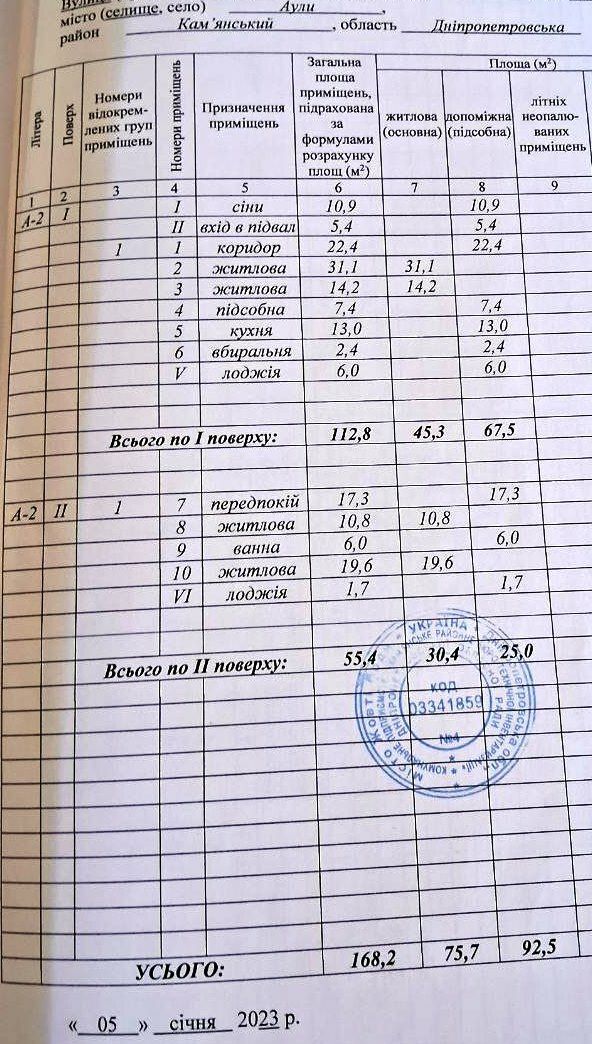 місто (селище, село) Аули,
район Кам'янський, область Дніпропетровська
Літера
Поверх
Номери відокрем-лених груп приміщень
Номери приміщень
Призначення приміщень
Загальна площа приміщень, підрахована за формулами розрахунку площ (м²)
Площа (м²)
житлова (основна)
допоміжна (підсобна)
літніх неопалю-ваних приміщень
1 2 3 4 5 6 7 8 9
А-2 I I сіни 10,9 10,9
II вхід в підвал 5,4 5,4
1 1 коридор 22,4 22,4
2 житлова 31,1 31,1
3 житлова 14,2 14,2
4 підсобна 7,4 7,4
5 кухня 13,0 13,0
6 вбиральня 2,4 2,4
V лоджія 6,0 6,0
Всього по I поверху: 112,8 45,3 67,5
А-2 II 1 7 передпокій 17,3 17,3
8 житлова 10,8 10,8
9 ванна 6,0 6,0
10 житлова 19,6 19,6
VI лоджія 1,7 1,7
Всього по II поверху: 55,4 30,4 25,0
УКРАЇНА
код
03341859
№4
УСЬОГО: 168,2 75,7 92,5
« 05 » січня 2023 р.